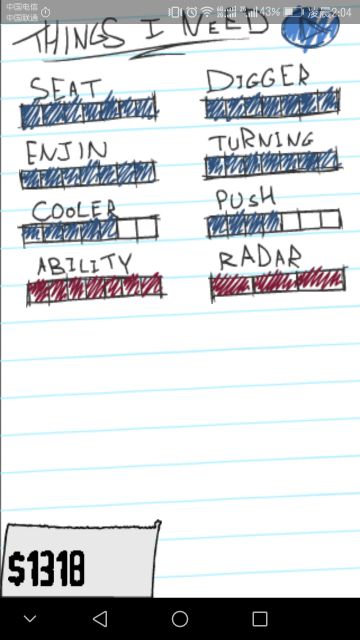 中国电信
中国联通
43%
凌晨2:04
THINGS I NEED
SEAT
DIGGER
ENJIN
TURNING
COOLER
PUSH
ABILITY
RADAR
$1318